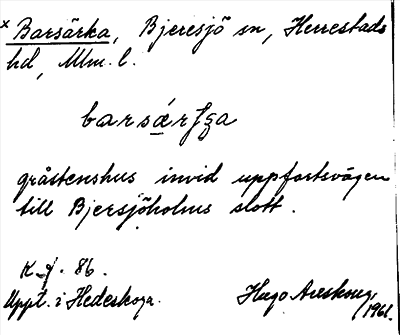 x Barsärka, Bjeresjö sn, Herrestads
hd, Mlm. l.
gråstenshus invid uppfartsvägen
till Bjersjöholms slott.
K. 86.
Uppt. i Hedeskoga.
Hugo Areskoug
1961.